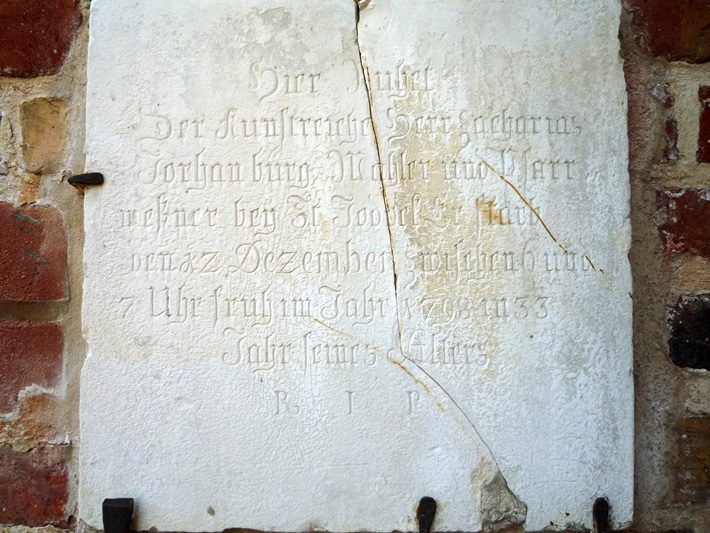 Hier Ruhet
Der Kunstreiche Herr Zacharias
Mahler und Pfarr
meßner bey St. Er starb
den 12 Dezember zwischen 6 und
7 Uhr früh im Jahr 1798 im 33
Jahr seines Alters
R I P